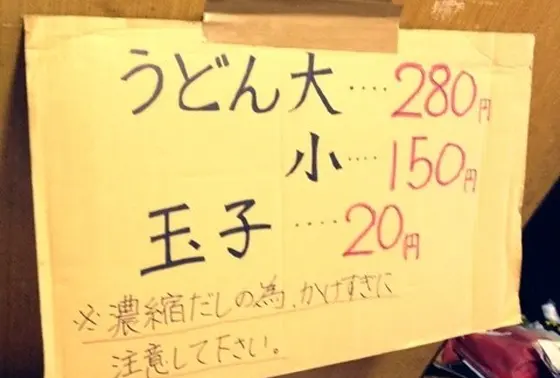 うどん大‥‥280円
小‥‥150円
玉子‥‥20円
※濃縮だしの為、かけすぎに
注意して下さい。